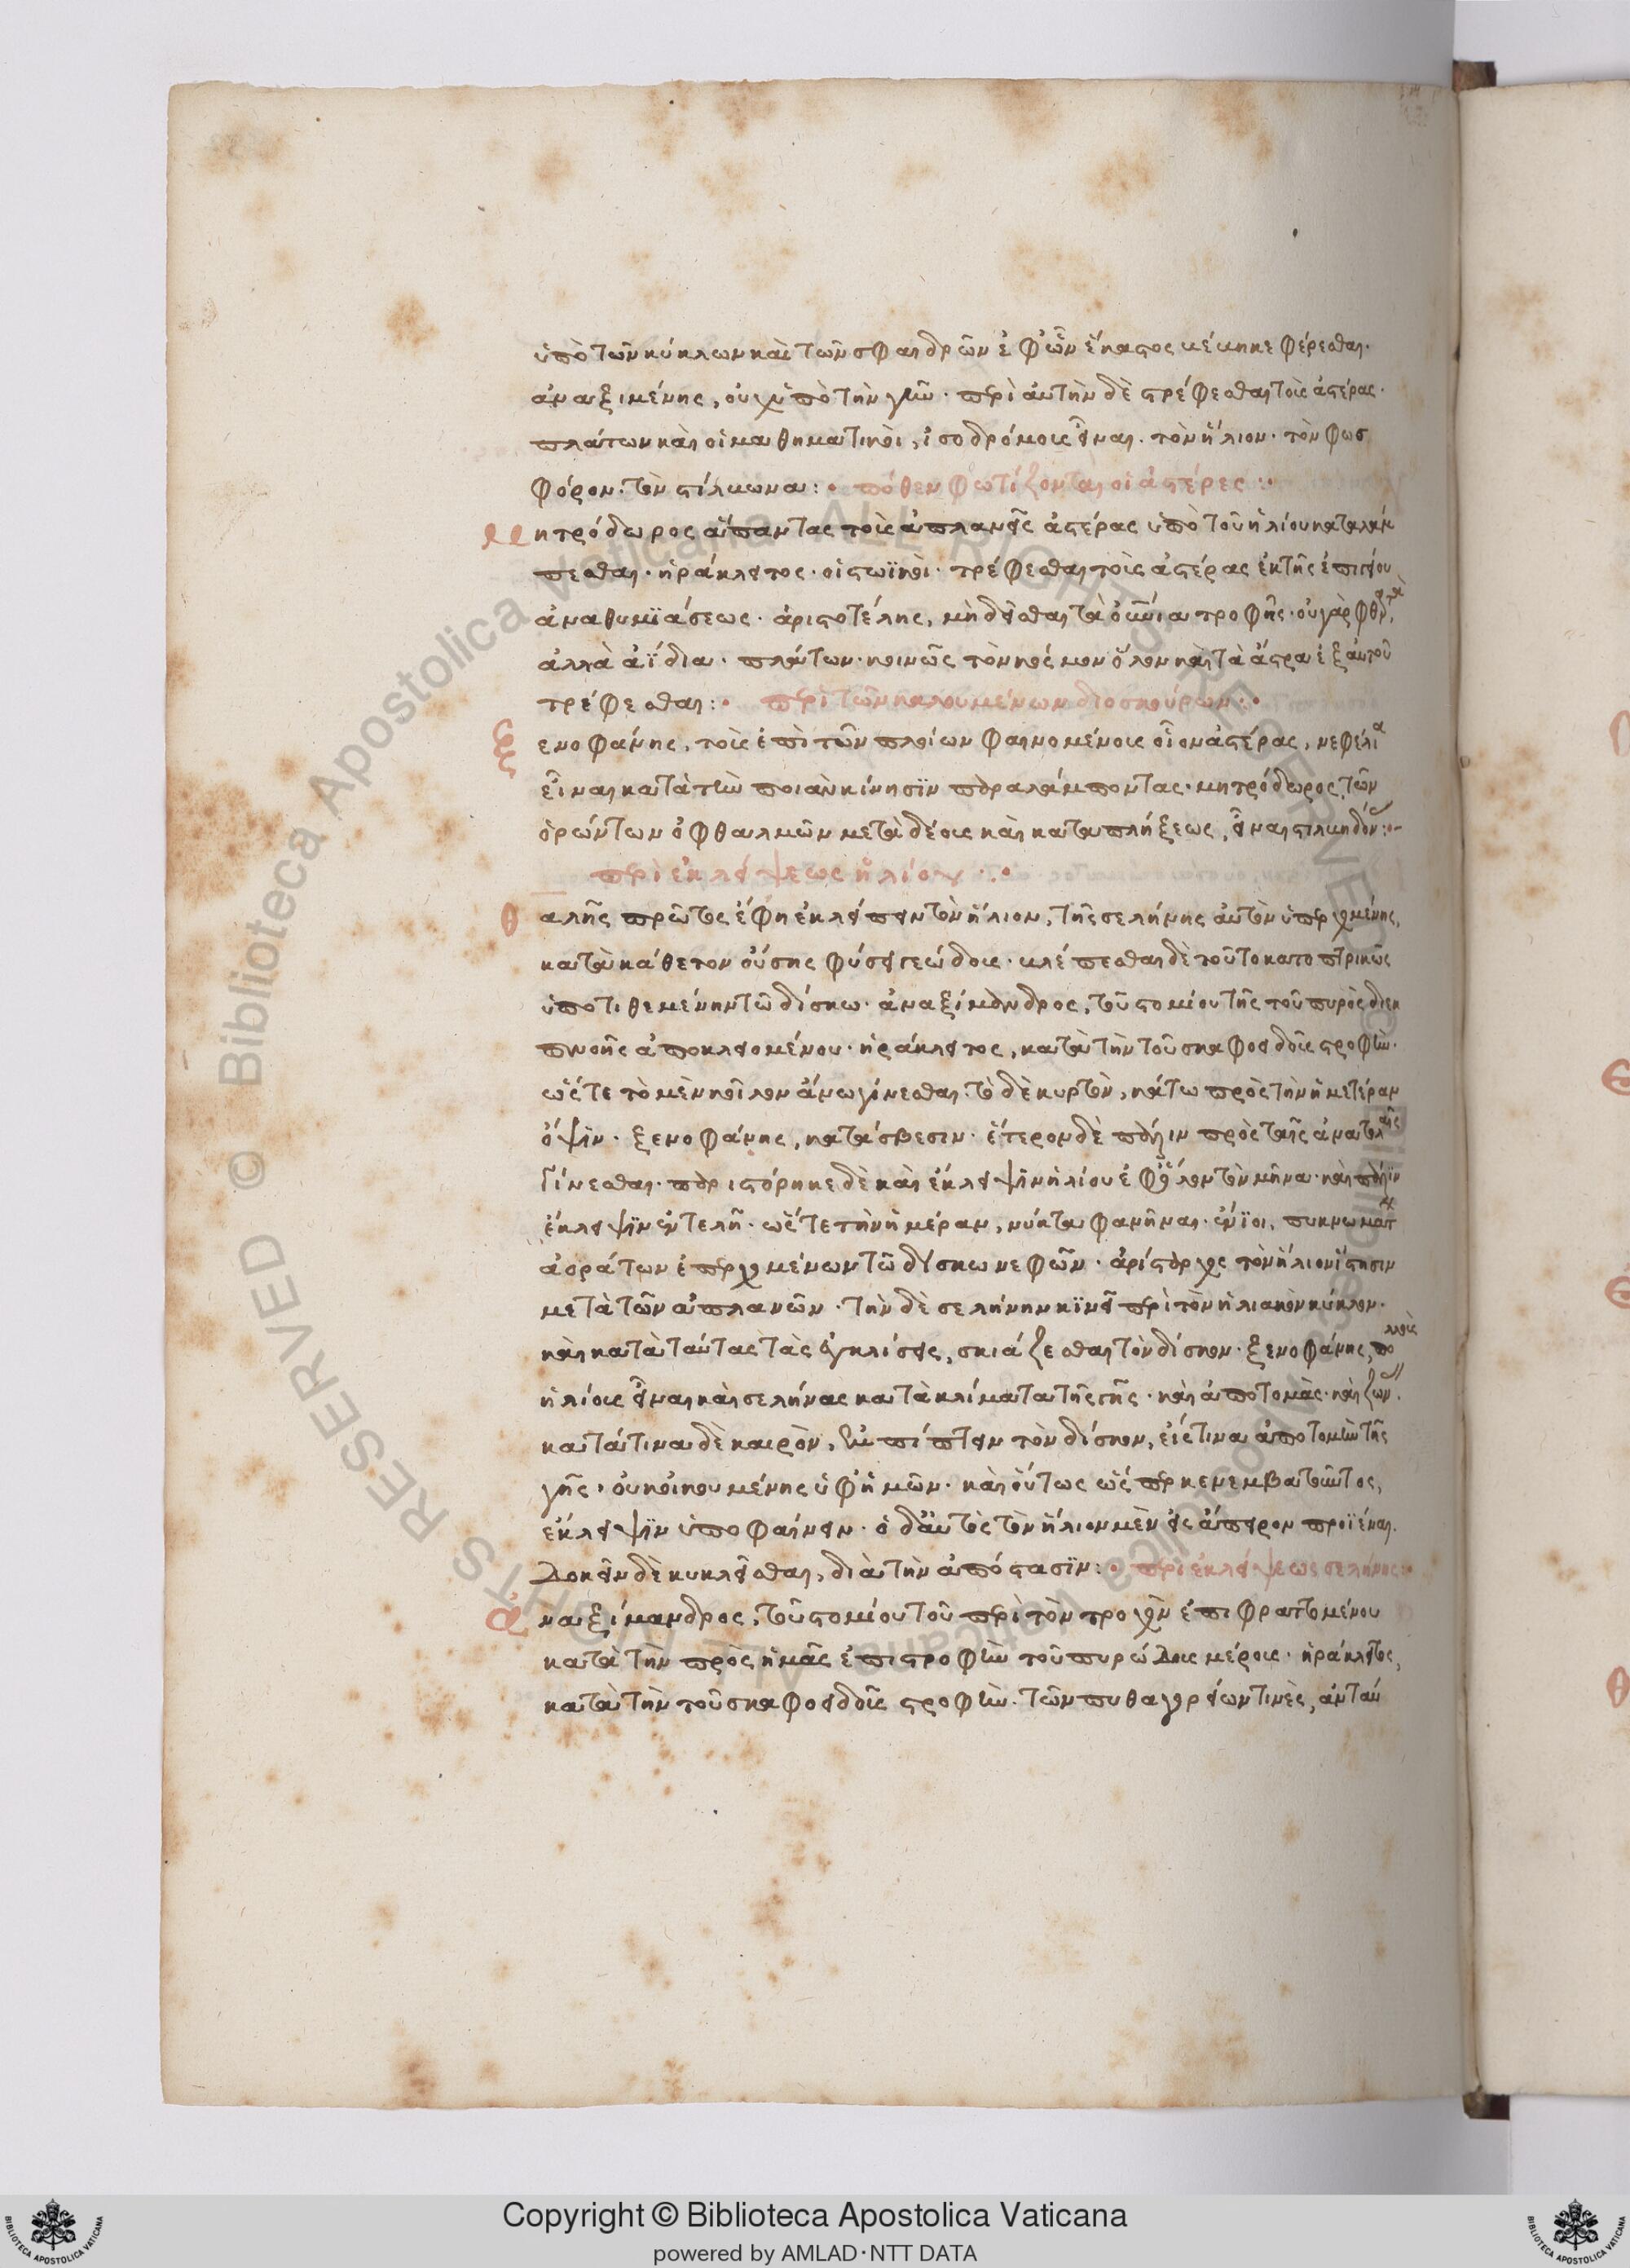 ὑπὸ τῶν κύκλων καὶ τῶν σφαιρῶν ἐφ' ὧν ἕκαστος βέβηκε φέρεσθαι.
ἀναξιμένης, οὐχ ὑπὸ τὴν γῆν. περὶ αὐτὴν δὲ στρέφεσθαι τοὺς ἀστέρας.
πλάτων καὶ οἱ μαθηματικοὶ, ἰσοδρόμους εἶναι. τὸν ἥλιον. τὸν φωσ
φόρον. τὸν στίλβωνα:• πόθεν φωτίζονται οἱ ἀστέρες:•
Μητρόδωρος ἅπαντας τοὺς ἀπλανεῖς ἀστέρας ὑπὸ τοῦ ἡλίου καταλάμ
πεσθαι. ἡράκλειτος. οἱ στωϊκοὶ. τρέφεσθαι τοὺς ἀστέρας ἐκ τῆς ἐπιγείου
ἀναθυμϊάσεως. ἀριστοτέλης, μὴ δεῖσθαι τὰ οὐράνια τροφῆς. οὐ γὰρ φθαρτὰ,
ἀλλὰ ἀΐδια. πλάτων. κοινῶς τὸν κόσμον ὅλον καὶ τὰ ἄστρα ἐξ αὐτοῦ
τρέφεσθαι:• περὶ τῶν καλουμένων διοσκούρων:•
Ξενοφάνης, τοὺς ἐπὶ τῶν πλοίων φαινομένους οἷον ἀστέρας, νεφέλια
εἶναι κατὰ τὴν ποιὰν κίνησϊν παραλάμποντας. μητρόδωρος, τῶν
ὁρώντων ὀφθαλμῶν μετὰ δέους καὶ καταπλήξεως, εἶναι στιλβηδόνας:•
περὶ ἐκλείψεως ἡλίου:•
Θαλῆς πρῶτος ἔφη ἐκλείπειν τὸν ἥλιον, τῆς σελήνης αὐτὸν ὑπερχομένης,
κατὰ κάθετον οὔσης φύσει γεώδους. βλέπεσθαι δὲ τοῦτο κατοπτρικῶς
ὑποτιθεμένην τῶ δίσκω. ἀναξίμανδρος, τοῦ στομίου τῆς τοῦ πυρὸς διεκ
πνοῆς ἀποκλειομένου. ἡράκλειτος, κατὰ τὴν τοῦ σκαφοειδοῦς στροφὴν.
ὥστε τὸ μὲν κοῖλον ἄνω γίνεσθαι. τὸ δὲ κυρτὸν, κάτω πρὸς τὴν ἡμετέραν
ὄψϊν. ξενοφάνης, κατάσβεσιν. ἕτερον δὲ πάλιν πρὸς ταῖς ἀνατολαῖς
γίνεσθαι. παριστόρηκε δὲ καὶ ἔκλειψϊν ἡλίου ἐφ' ὅλον τὸν μῆνα. καὶ πάλϊν
ἔκλειψϊν ἐντελῆ. ὥστε τὴν ἡμέραν, νύκτα φανῆναι. ἔνϊοι, πυκνωματ
ἀοράτων ἐπερχομένων τῶ δίσκω νεφῶν. ἀρίσταρχος τὸν ἥλιον ἵστησιν
μετὰ τῶν ἀπλανῶν. τὴν δὲ σελήνην κϊνεῖ περὶ τὸν ἡλιακὸν κύκλον.
καὶ κατὰ ταύτας τὰς ἐγκλίσεις, σκιάζεσθαι τὸν δίσκον. ξενοφάνης, πολλοὺς
ἡλίους εἶναι καὶ σελήνας κατὰ κλίματα τῆς γῆς. καὶ ἀποτομὰς. καὶ ζων.
κατά τινα δὲ καιρὸν, ἐμπίπτειν τὸν δίσκον, εἴς τινα ἀποτομὴν τῆς
γῆς. οὐκ οἰκουμένης ὑφ' ἡμῶν. καὶ οὕτως ὥσπερ κενεμβατοῦντος,
ἔκλειψϊν ὑποφαίνειν. ὁ δ' αὐτὸς τὸν ἥλιον μὲν εἰς ἄπειρον προϊέναι.
δοκεῖν δὲ κυκλεῖσθαι, διὰ τὴν ἀπόστασϊν:• περὶ ἐκλείψεως σελήνης:•
Ἀναξίμανδρος, τοῦ στομίου τοῦ περὶ τὸν τροχὸν ἐπιφραττομένου
κατὰ τὴν πρὸς ἡμᾶς ἐπιστροφὴν τοῦ πυρώδους μέρους. ἡράκλειτος,
κατὰ τὴν τοῦ σκαφοειδοῦς στροφὴν. τῶν πυθαγορείων τινὲς, ἀνταύ